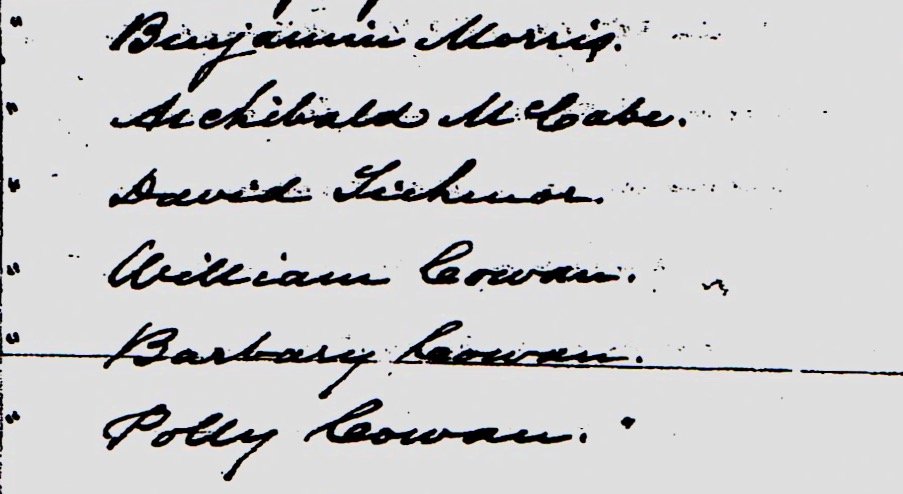 " Benjamin Morris.
" Archibald McCabe.
" David
" William Cowan.
" Barbary Cowan.
" Polly Cowan. "